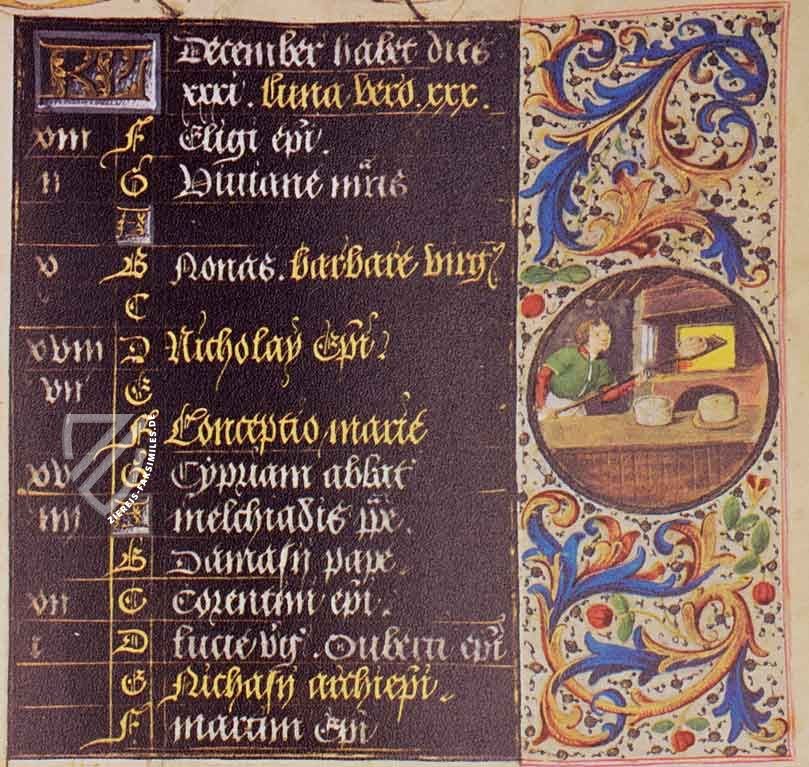 KL December habet dies
xxxi. Luna vero. xxx.
xiii F Eligi epi.
ii G Viviane mris
A
x B Nonas. barbare virg
C
xviii D Nicholay Epi.
vii E
F Conceptio marie
xv G Cypriani abbat
iiii A melchiadis ppe.
B Damasy pape.
xii C Corentini epi.
i D lucie virg. Autberti epi
E Nichasy archiepi.
F martini Epi
ZIEREIS-FAKSIMILES.DE